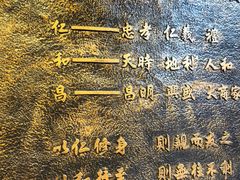 仁——忠孝 仁義 誰
和——天時 地利 人和
昌——昌明 興盛 大商家
以仁修身 則親而友之
則無往不利